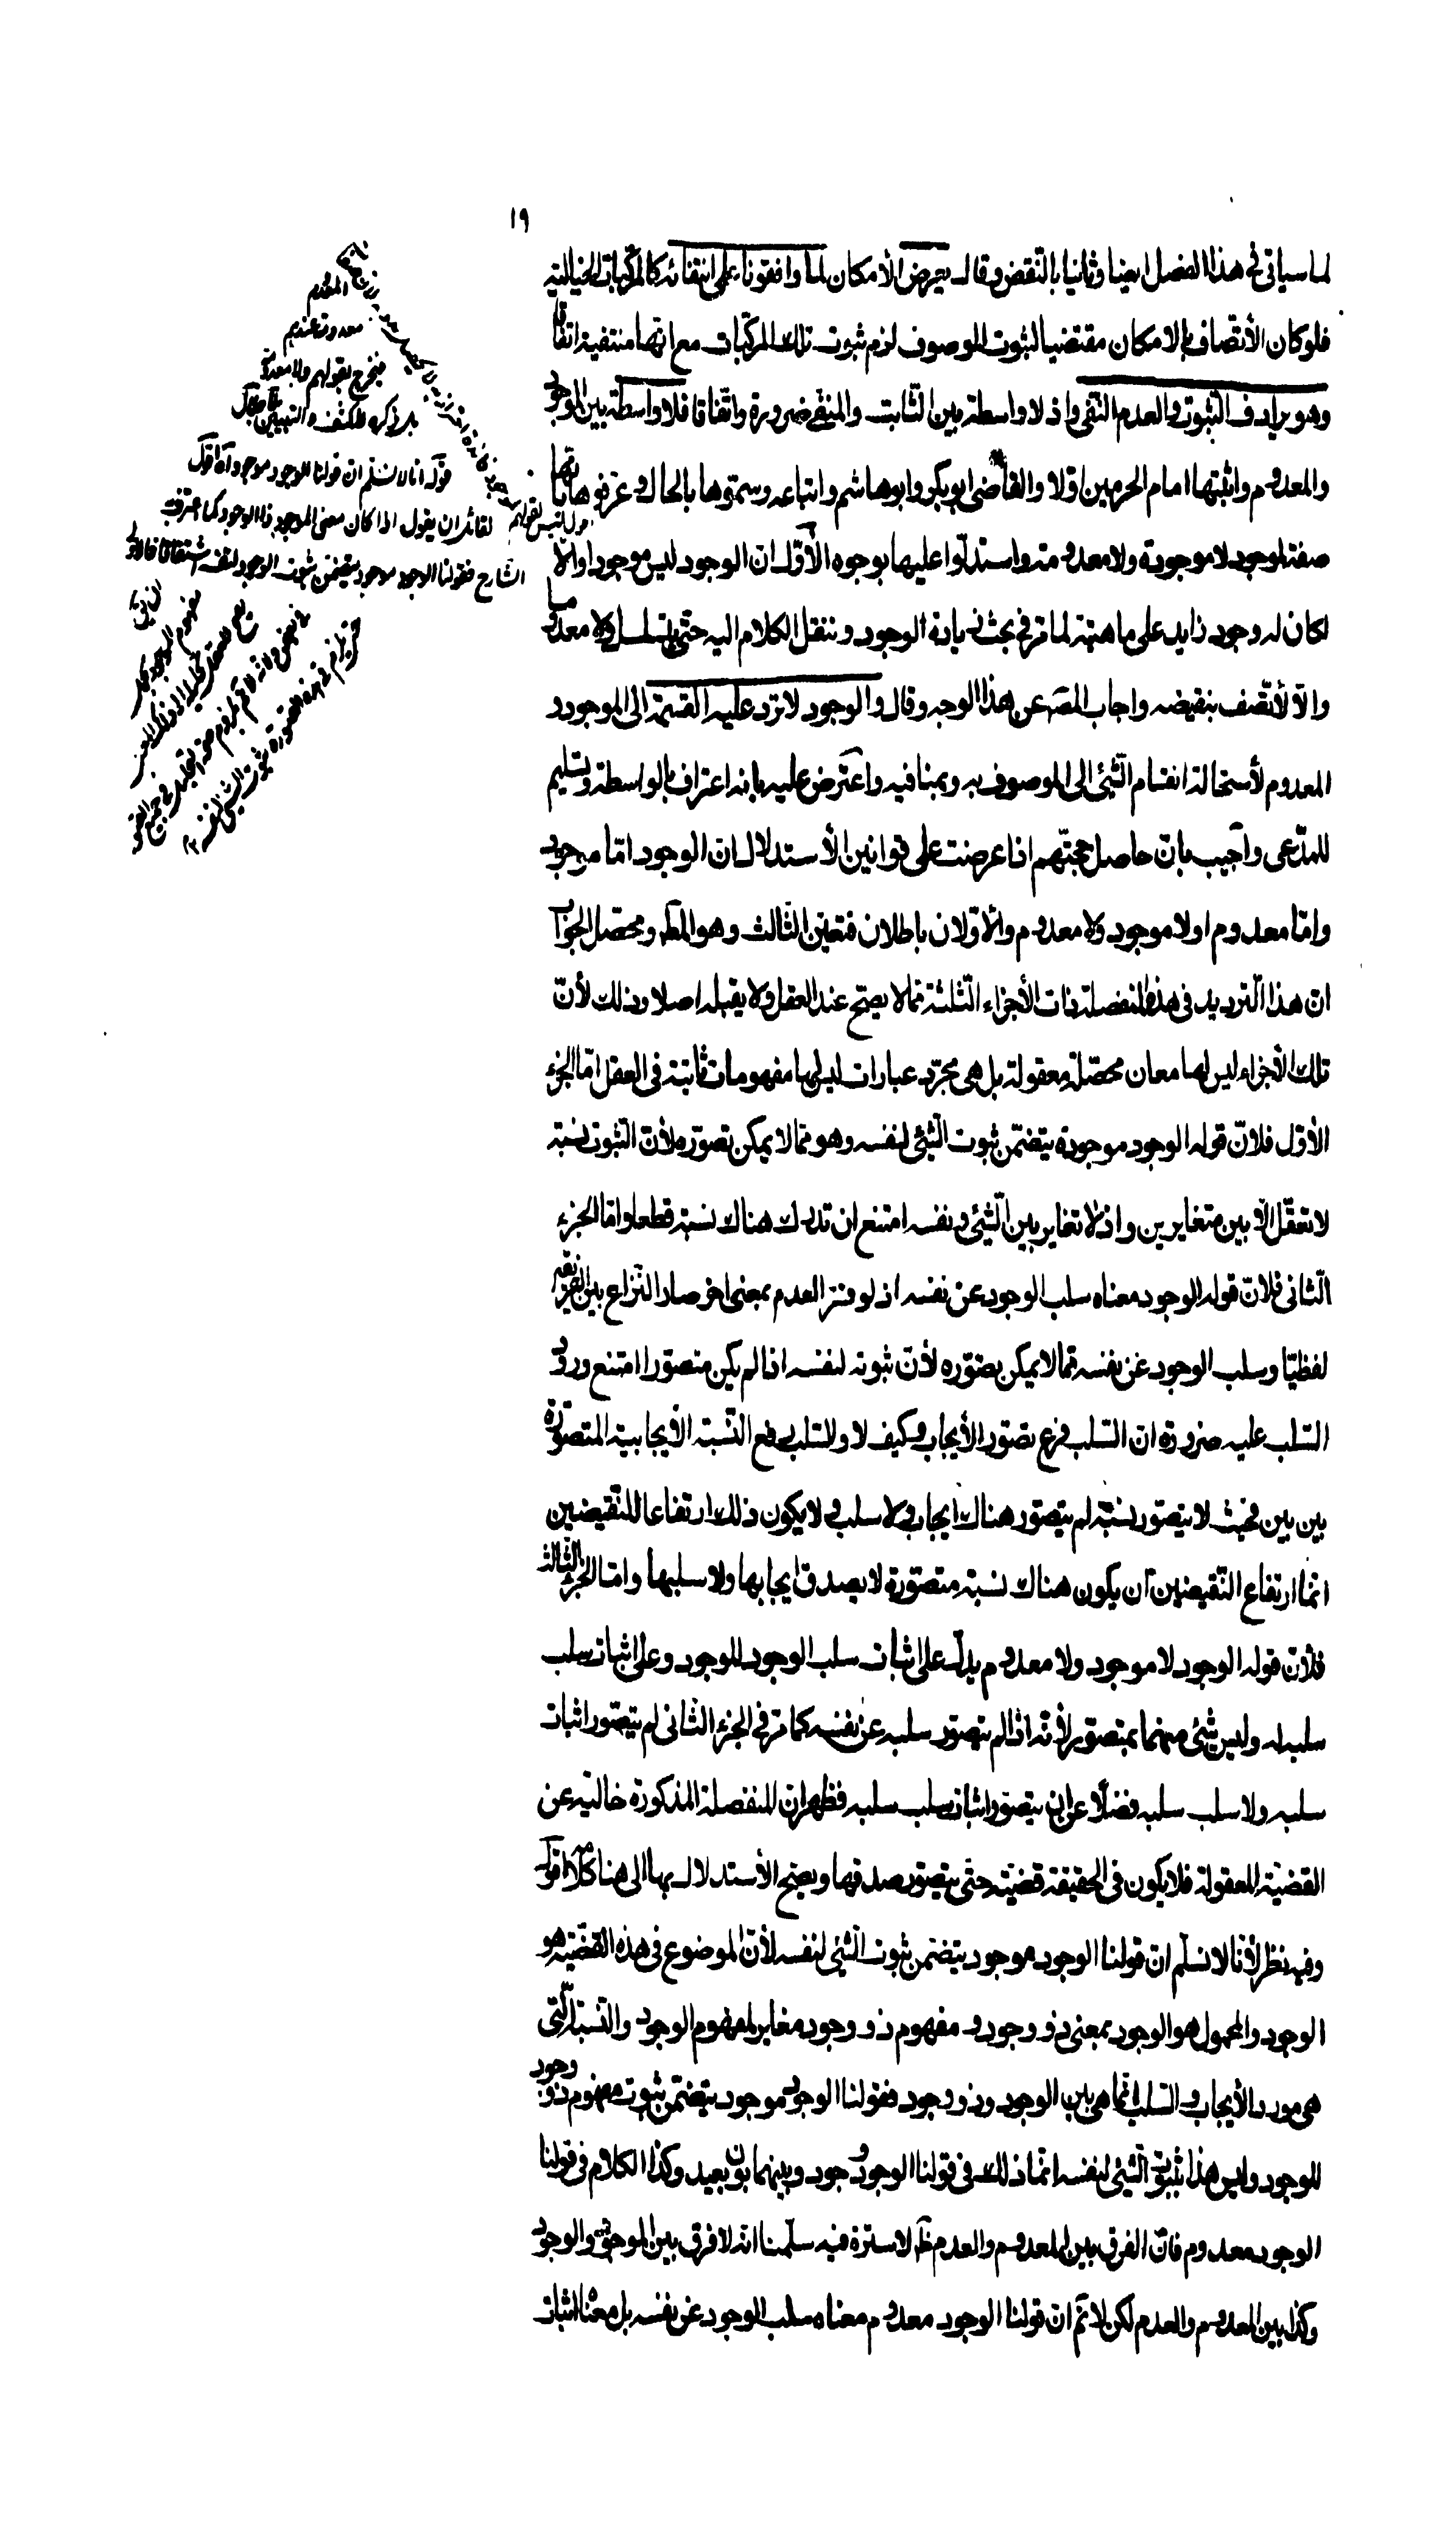 ١٩
لما سياتى فى هذا الفصل ايضا وثانيا بالنّقض وقال يعرض الأمكان لما وافقونا على انتفائه كالمركّبات الخياليّة
فلو كان الأتّصاف بالامكان مقتضيا لثبوت الموصوف لزم ثبوت تلك المركّبات مع انّها منتفية اتفاقا
وهو يرادف الثّبوت والعدم النّفى واذ لا واسطة بين الثّابت والمنفى ضرورة واتّفاقا فلا واسطة بين الموجود
والمعدوم واثبتها امام الحرمين اوّلا والقاضى ابو بكر وابو هاشم واتباعه وسمّوها بالحال وعرّفوها بانّها
صفة لموجود لا موجودة ولا معدومة واستدلّوا عليها بوجوه الأوّل ان الوجود ليس موجودا والّا
لكان له وجود زايد على ماهيّته لما مرّ فى بحث زيادة الوجود وننقل الكلام اليه حتّى يتسلسل ولا معدوما
والّا لأتّصف بنقيضه واجاب المص عن هذا الوجه وقال والوجود لا ترد عليه القسمة الى الموجود و
المعدوم لأستحالة انقسام الشّئ الى الموصوف به وبمنافيه واعترض عليه بانه اعتراف بالواسطة وتسليم
للمدّعى واجيب بانّ حاصل حجّتهم اذا عرضت على قوانين الأستدلال ان الوجود امّا موجود
وامّا معدوم او لا موجود ولا معدوم والأوّلان باطلان فتعيّن الثّالث وهو المط ومحصّل الجواب
انّ هذا التّرديد فى هذه المنفصلة ذات الأجزاء الثّلثة ممّا لا يصحّ عند العقل ولا يقبله اصلا وذلك لأنّ
تلك الأجزاء ليس لها معان محصّلة معقولة بل هى مجرّد عبارات ليس لها مفهومات ثابتة فى العقل امّا الجزء
الأوّل فلانّ قوله الوجود موجودة يتضمّن ثبوت الشّئ لنفسه وهو ممّا لا يمكن تصوّره لأنّ الثّبوت نسبة
لا تعقّل الّا بين متغايرين واذ لا تغاير بين الشّئ ونفسه امتنع ان تدرك هناك نسبة قطعا وامّا الجزء
الثّانى فلانّ قوله الوجود معناه سلب الوجود عن نفسه اذ لو فسّر العدم بمعنى اخر صار النّزاع بين الفريقين
لفظيّا وسلب الوجود عن نفسه ممّا لا يمكن تصوّره لأنّ ثبوته لنفسه اذا لم يكن متصوّرا امتنع ورود
السّلب عليه ضرورة ان السّلب فرع تصوّر الأيجاب وكيف لا والسّلب رفع النّسبة الأيجابيّة المتصوّرة
بين بين فحيث لا يتصوّر نسبة لم يتصوّر هناك ايجاب ولا سلب ولا يكون ذلك ارتفاعا للنّقيضين
انّما ارتفاع النّقيضين ان يكون هناك نسبة متصوّرة لا يصدق ايجابها ولا سلبها وامّا الجزء الثّالث
فلأنّ قوله الوجود لا موجود ولا معدوم يدلّ على اثبات سلب الوجود للوجود وعلى اثبات سلب
سلبه له وليس شئ منهما بمتصوّر لأنّه اذا لم يتصوّر سلبه عن نفسه كما مرّ فى الجزء الثّانى لم يتصوّر اثبات
سلبه ولا سلب سلبه فضلا عن ان يتصوّر اثبات سلب سلبه فظهر ان المنفصلة المذكورة خالية عن
القضيّة المعقولة فلا يكون فى الحقيقة قضيّة حتّى يتصوّر صدقها ويصحّ الأستدلال بها الى هنا كلامه اقول
وفيه نظر لأنّا لا نسلّم ان قولنا الوجود موجود يتضمّن ثبوت الشّئ لنفسه لأنّ الموضوع فى هذه القضيّة هو
الوجود والمحمول هو الوجود بمعنى ذو وجود و مفهوم ذو وجود مغاير لمفهوم الوجود والنّسبة الّتى
هى مورد الأيجاب والسّلب انّما هى بين الوجود وذو وجود فقولنا الوجود موجود يتضمّن ثبوت مفهوم ذو وجود
للوجود وليس هذا ثبوت الشّئ لنفسه انّما ذلك فى قولنا الوجود وجود وبينهما بون بعيد وكذا الكلام فى قولنا
الوجود معدوم فانّ الفرق بين المعدوم والعدم ظ لا سترة فيه سلّمنا انّه لا فرق بين الموجود والوجود
وكذا بين المعدوم والعدم لكن لا نم ان قولنا الوجود معدوم معناه سلب الوجود عن نفسه بل معناه اثبات
معدومة عندهم
فيخرج بقولهم ولا معدومة
بل ذكره للكشف والتبيين
قوله انا لا نسلم ان قولنا الوجود موجود اه اقول
لقائل ان يقول اذا كان معنى الموجود ذا الوجود كما اعترف به
الشارح فقولنا الوجود موجود يتضمن ثبوت الوجود لنفسه اشتقاقا